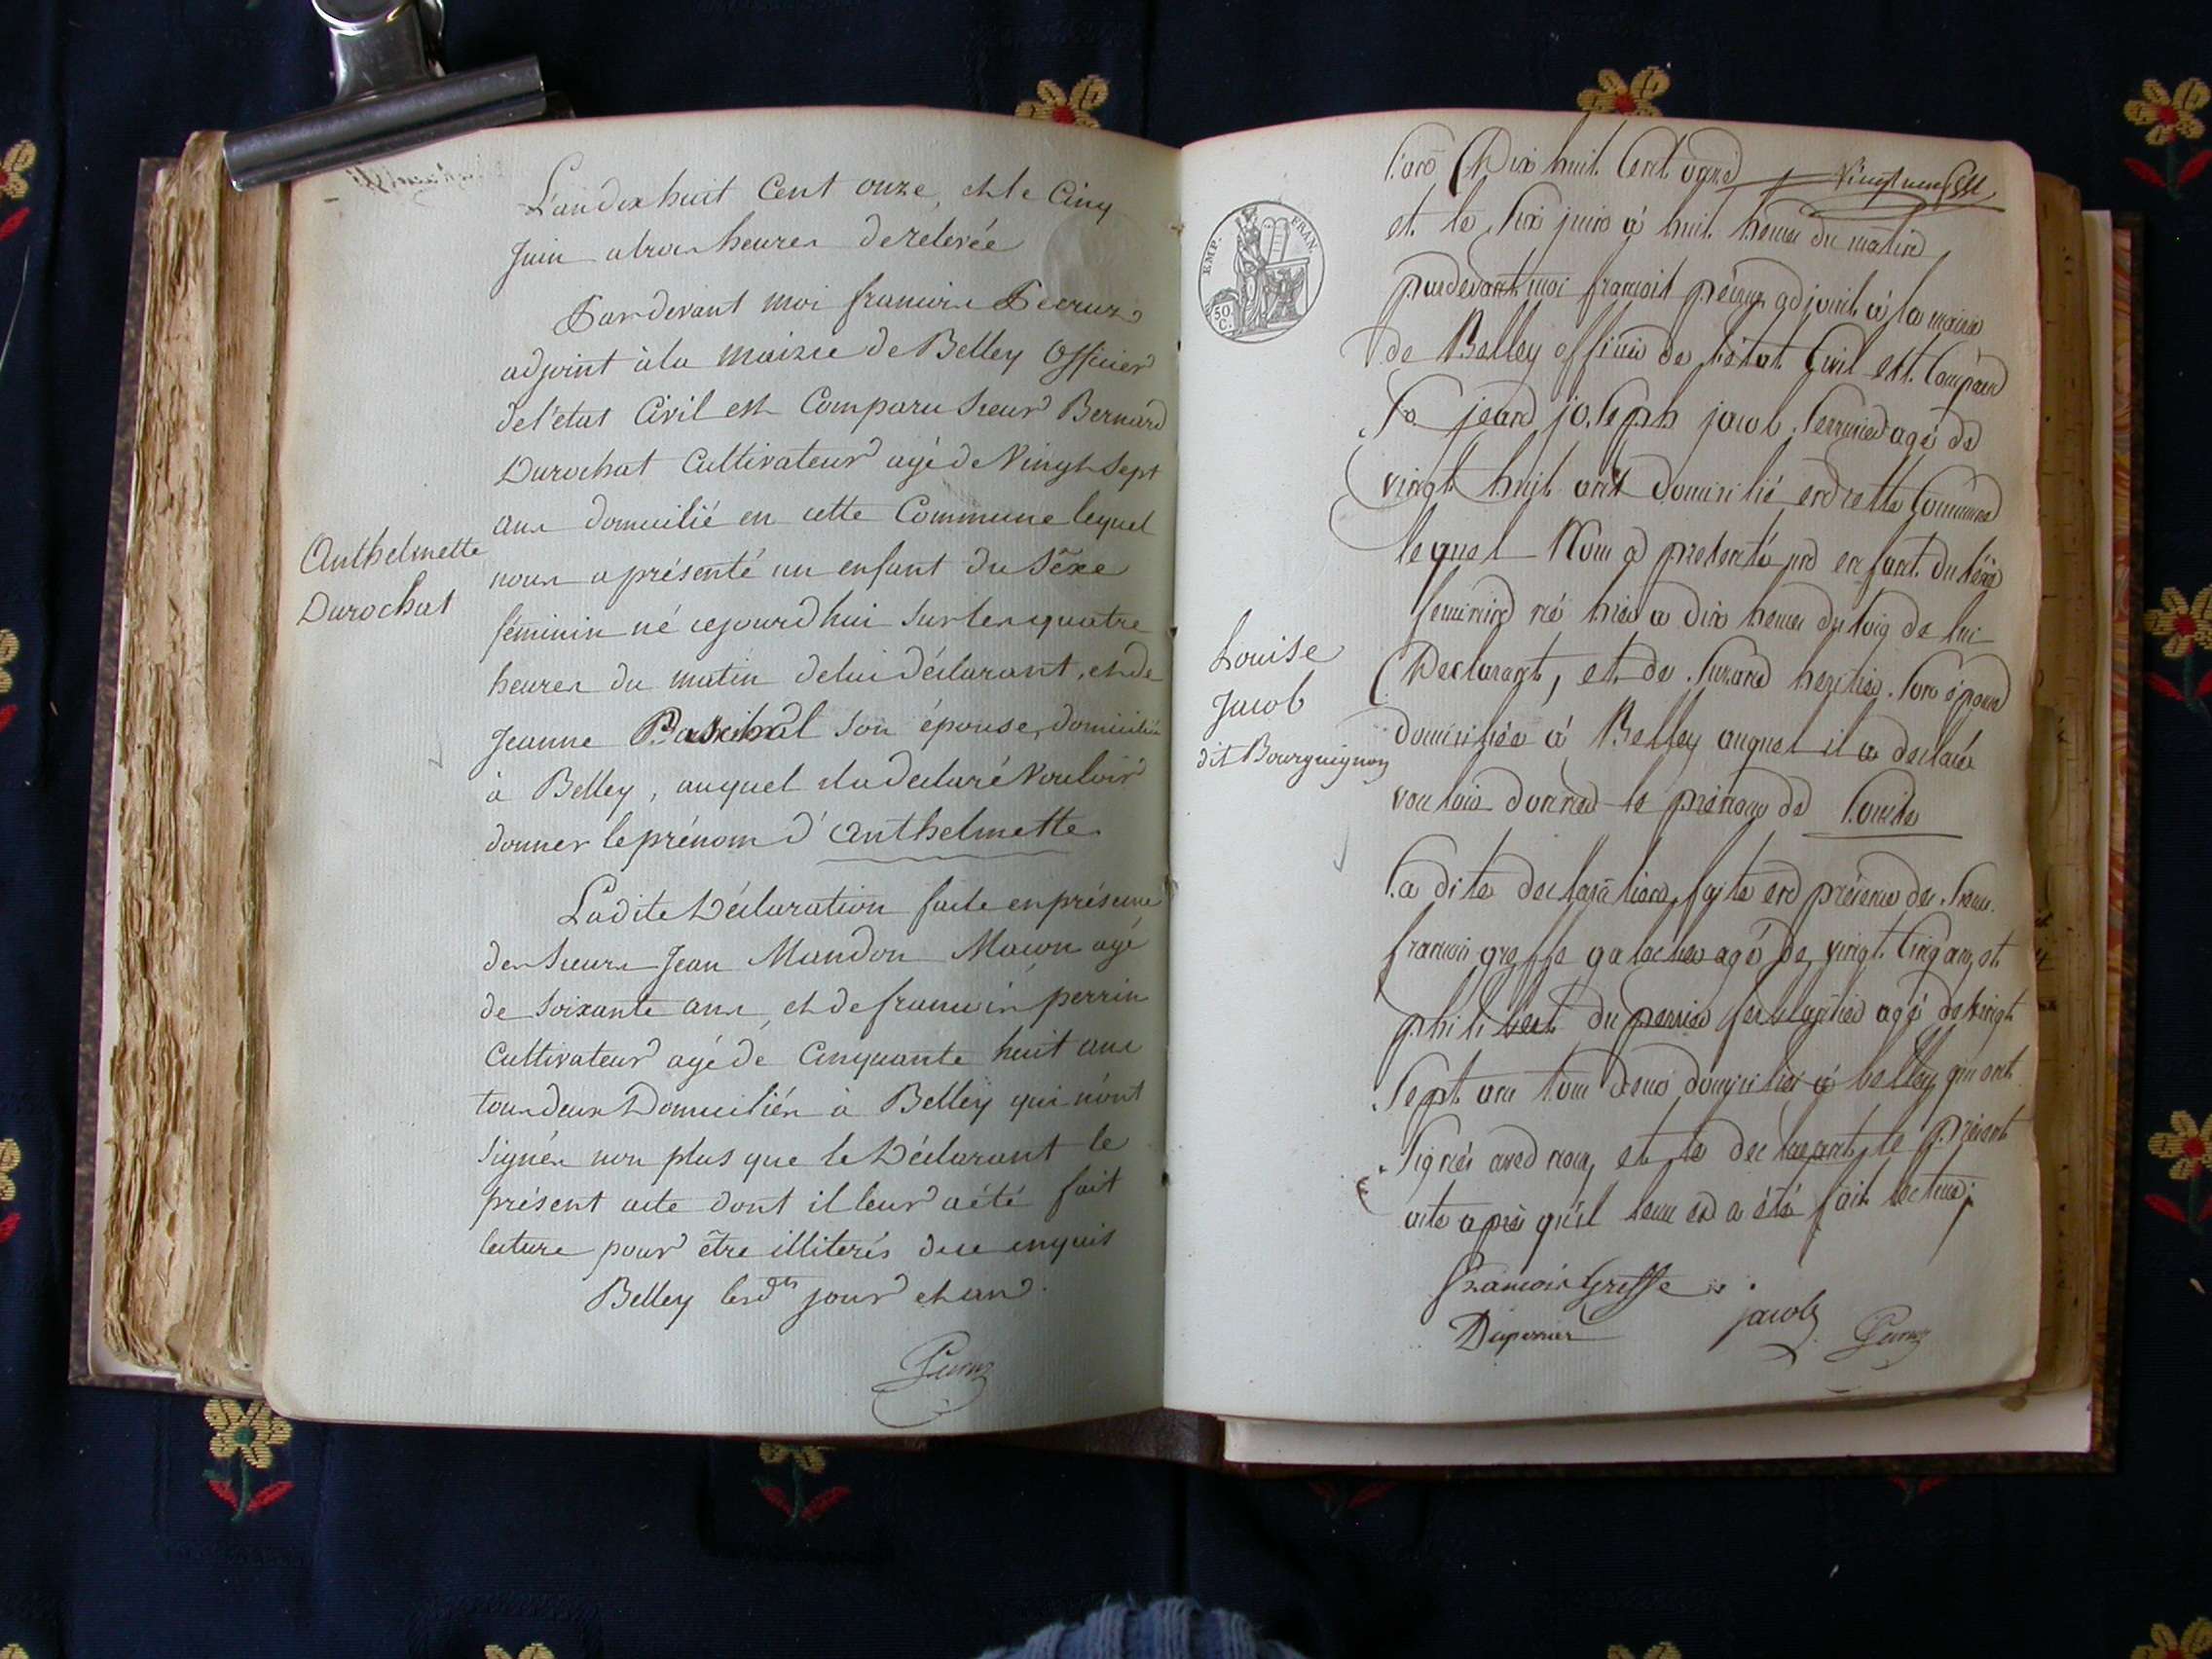 L'an dix huit Cent onze, et le Cinq
Juin a trois heures de relevée
Pardevant moi francois Pecruz
adjoint à la mairie de Belley Officier
de l'état Civil est Comparu Sieur Bernard
Durochat Cultivateur agé de Vingt Sept
ans domicilié en cette Commune lequel
nous a présenté un enfant du Sexe
féminin né cejourd'hui sur les quatre
heures du matin de lui déclarant, et de
Jeanne son épouse, domiciliée
à Belley, auquel il a declaré Vouloir
donner le prénom d'Anthelmette
Anthelmette
Durochat
Ladite Déclaration faite en présence
des Sieurs Jean Mandon Macon agé
de Soixante ans, et de francois perrin
Cultivateur agé de Cinquante huit ans
tous deux Domiciliés à Belley qui n'ont
Signés non plus que le Déclarant le
présent acte dont il leur a été fait
lecture pour être illiterés de ce enquis
Belley lesdts jour et an.
L'an Dix huit Cent onze
et le Six juin à huit heures du matin
pardevant moi francois adjoint à la mairie
de Belley officier de l'état Civil est Comparu
Sr jean joseph jacob Serrurier agé de
vingt huit ans domicilié en cette Commune
lequel Nous a presenté un enfant du séxe
feminin né hier a dix heures du soir de lui
Declarant, et de Suzanne son épouse
domiciliée à Belley auquel il a declaré
vouloir donner le prénom de Louise
Louise
Jacob
dit Bourguignon
EMP. FRAN.
50 C.
La dite declaration faite en présence des Sieurs
francois greffe agé de vingt Cinq ans et
philibert duperrier ferblantier agé de vingt
Sept ans tous deux domiciliés à belley qui ont
Signés avec nous et le declarant le présent
acte après qu'il leur en a été fait lecture;
francois Greffe
jacob
Duperrier